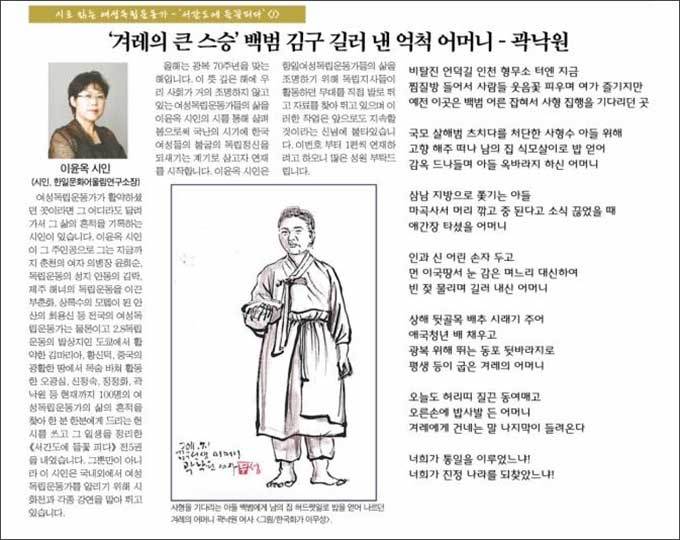 시로 읽는 여성독립운동가 - '서간도에 들꽃피다'
'겨레의 큰 스승' 백범 김구 길러 낸 억척 어머니 - 곽낙원
이윤옥 시인
(시인, 한일문화어울림연구소장)
여성독립운동가가 활약하셨
던 곳이라면 그 어디라도 달려
가서 그 삶의 흔적을 기록하는
시인이 있습니다. 이윤옥 시인
이 그 주인공으로 그는 지금까
지 춘천의 여자 의병장 윤희순,
독립운동의 성지 안동의 김락,
제주 해녀의 독립운동을 이끈
부춘화, 상록수의 모델이 된 안
산의 최용신 등 전국의 여성독
립운동가는 물론이고 2.8독립
운동의 발상지인 도쿄에서 활
약한 김마리아, 황신덕, 중국의
광활한 땅에서 목숨 바쳐 활동
한 오광심, 신정숙, 정정화, 곽
낙원 등 현재까지 100명의 여
성독립운동가의 삶의 흔적을
찾아 한 분 한분에게 드리는 헌
시를 쓰고 그 일생을 정리한
《서간도에 들꽃 피다》 전5권
을 내었습니다. 그뿐만이 아니
라 이 시인은 국내외에서 여성
독립운동가를 알리기 위해 시
화전과 각종 강연을 맡아 뛰고
있습니다.
올해는 광복 70주년을 맞는
해입니다. 이 뜻 깊은 해에 우
리 사회가 거의 조명하지 않고
있는 여성독립운동가들의 삶을
이윤옥 시인의 시를 통해 살펴
봄으로써 국난의 시기에 한국
여성들의 불굴의 독립정신을
되새기는 계기로 삼고자 연재
를 시작합니다. 이윤옥 시인은
항일여성독립운동가들의 삶을
조명하기 위해 독립지사들이
활동하던 무대를 직접 발로 뛰
고 자료를 찾아 뛰고 있으며 이
러한 작업은 앞으로도 지속할
것이라는 신념에 불타있습니
다. 이번호 부터 1편씩 연재하
려고 하오니 많은 성원 부탁드
립니다.
김구선생 어머니
곽낙원 여사
사형을 기다리는 아들 백범에게 남의 집 허드렛일로 밥을 얻어 나르던
겨레의 어머니 곽낙원 여사 <그림/한국화가 이무성>.
비탈진 언덕길 인천 형무소 터엔 지금
찜질방 들어서 사람들 웃음꽃 피우며 여가 즐기지만
예전 이곳은 백범 어른 잡혀서 사형 집행을 기다리던 곳
국모 살해범 츠치다를 처단한 사형수 아들 위해
고향 해주 떠나 남의 집 식모살이로 밥 얻어
감옥 드나들며 아들 옥바라지 하신 어머니
삼남 지방으로 쫓기는 아들
마곡사서 머리 깎고 중 된다고 소식 끊었을 때
애간장 타셨을 어머니
인과 신 어린 손자 두고
먼 이국땅서 눈 감은 며느리 대신하여
빈 젖 물리며 길러 내신 어머니
상해 뒷골목 배추 시래기 주어
애국청년 배 채우고
광복 위해 뛰는 동포 뒷바라지로
평생 등이 굽은 겨레의 어머니
오늘도 허리띠 질끈 동여매고
오른손에 밥사발 든 어머니
겨레에게 건네는 말 나지막이 들려온다
너희가 통일을 이루었느냐!
너희가 진정 나라를 되찾았느냐!